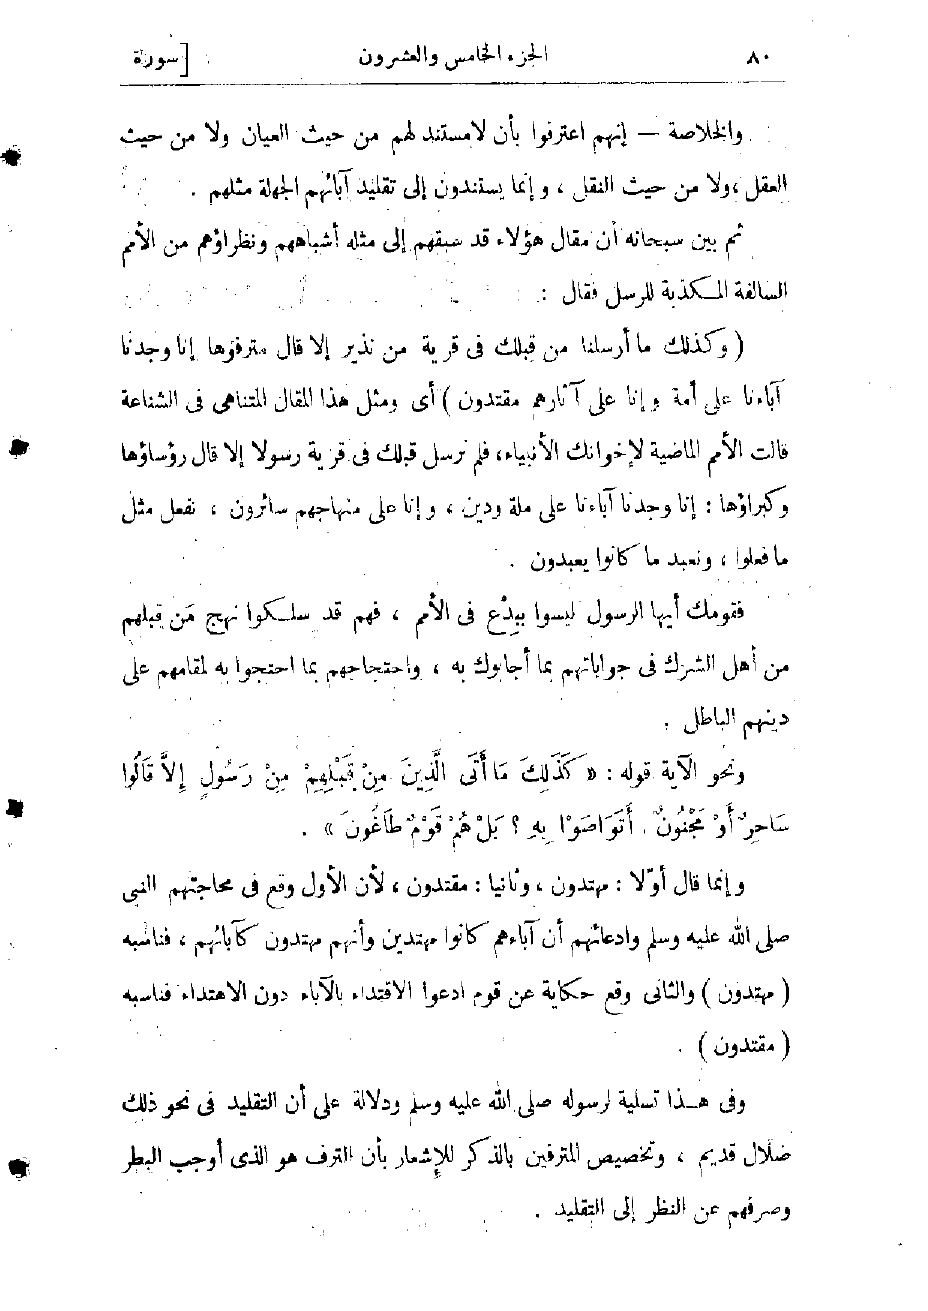 ٨٠ الجزء الخامس والعشرون [سورة
والخلاصة — إنهم اعترفوا بأن لامستند لهم من حيث العيان ولا من حيث
العقل ،ولا من حيث النقل ، وإنما يستندون إلى تقليد آبائهم الجهلة مثلهم .
ثم بين سبحانه أن مقال هؤلاء قد سبقهم إلى مثله أشباههم ونظراؤهم من الأمم
السالفة المكذبة للرسل فقال :
( وكذلك ما أرسلنا من قبلك فى قرية من نذير إلا قال مترفوها إنا وجدنا
آباءنا على أمة وإنا على آثارهم مقتدون ) أى ومثل هذا المقال المتناهى فى الشناعة
قالت الأمم الماضية لإخوانك الأنبياء، فلم نرسل قبلك فى قرية رسولا إلا قال رؤساؤها
وكبراؤها : إنا وجدنا آباءنا على ملة ودين ، وإنا على منهاجهم سائرون ، نفعل مثل
ما فعلوا ، ونعبد ما كانوا يعبدون .
فقومك أيها الرسول ليسوا ببِدْع فى الأمم ، فهم قد سلكوا نهج مَن قبلهم
من أهل الشرك فى جواباتهم بما أجابوك به ، واحتجاجهم بما احتجوا به لمقامهم على
دينهم الباطل .
ونحو الآية قوله : « كَذَلِكَ مَا أَتَى الَّذِينَ مِنْ قَبْلِهِمْ مِنْ رَسُولٍ إِلاَّ قَالُوا
سَاحِرٌ أَوْ مَجْنُونٌ. أَتَوَاصَوْا بِهِ ؟ بَلْ هُمْ قَوْمٌ طَاغُونَ » .
وإنما قال أوّلا : مهتدون ، وثانيا : مقتدون ، لأن الأول وقع فى محاجتهم النبى
صلى الله عليه وسلم وادعائهم أن آباءهم كانوا مهتدين وأنهم مهتدون كآبائهم ، فناسبه
( مهتدون ) والثانى وقع حكاية عن قوم ادعوا الاقتداء بالآباء دون الاهتداء فناسبه
( مقتدون ) .
وفى هذا تسلية لرسوله صلى الله عليه وسلم ودلالة على أن التقليد فى نحو ذلك
ضلال قديم ، وتخصيص المترفين بالذكر للإشعار بأن الترف هو الذى أوجب البطر
وصرفهم عن النظر إلى التقليد .